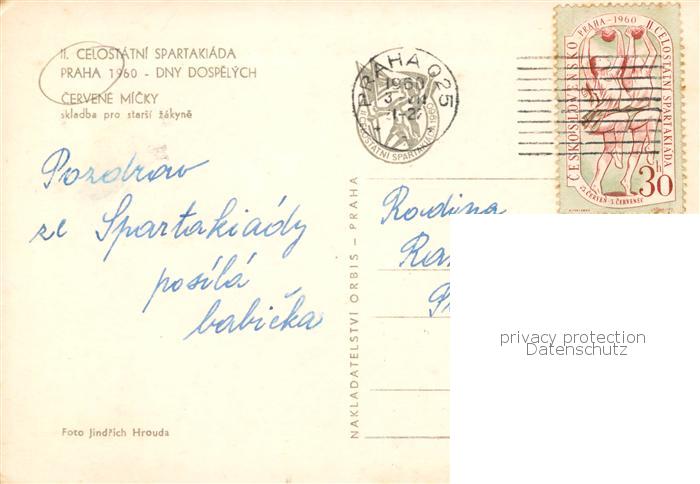 II. CELOSTÁTNÍ SPARTAKIÁDA
PRAHA 1960 - DNY DOSPĚLÝCH
ČERVENÉ MÍČKY
skladba pro starší žákyně
Pozdrav
ze Spartakiády
posílá
babička
Foto Jindřich Hrouda
NAKLADATELSTVÍ ORBIS – PRAHA
PRAHA 025
1960
3 VII
CELOSTÁTNÍ SPARTAKIÁDA 1960
ČESKOSLOVENSKO
PRAHA - 1960
II. CELOSTÁTNÍ SPARTAKIÁDA
23. ČERVEN - 3. ČERVENEC
30 h
Rodina
privacy protection
Datenschutz